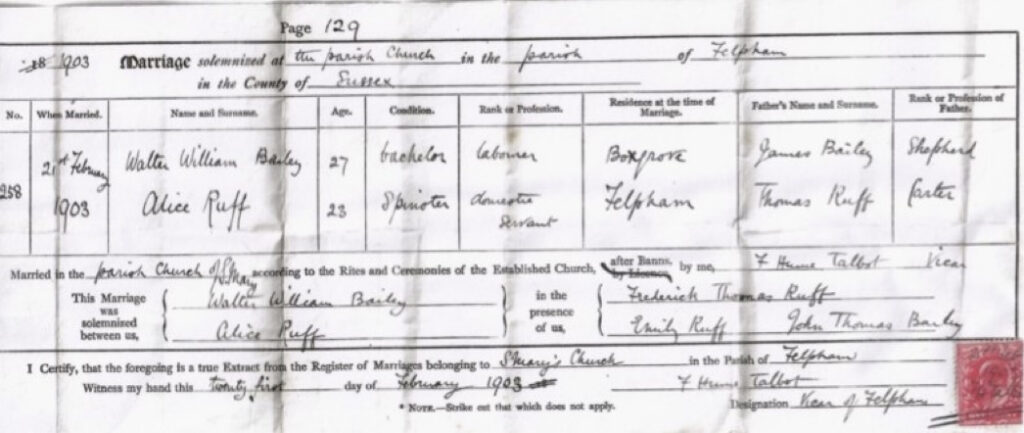 Page 129
1903 Marriage solemnized at the parish Church in the parish of Felpham
in the County of Sussex
No. When Married. Name and Surname. Age. Condition. Rank or Profession. Residence at the time of Marriage. Father's Name and Surname. Rank or Profession of Father.
258 21st February Walter William Bailey 27 bachelor labourer Boxgrove James Bailey Shepherd
1903 Alice Ruff 23 Spinster domestic servant Felpham Thomas Ruff Carter
Married in the parish Church of S. Mary according to the Rites and Ceremonies of the Established Church, after Banns. by me, F Hume Talbot Vicar
This Marriage was solemnized between us, Walter William Bailey in the presence of us, Frederick Thomas Ruff
Alice Ruff Emily Ruff John Thomas Bailey
I Certify, that the foregoing is a true Extract from the Register of Marriages belonging to S Mary's Church in the Parish of Felpham
Witness my hand this twenty first day of February 1903 F Hume Talbot
* NOTE.—Strike out that which does not apply. Designation Vicar of Felpham